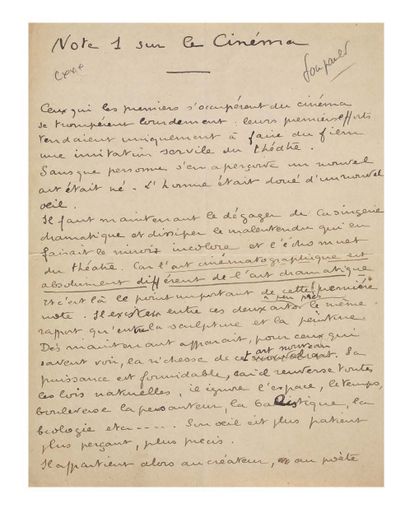 Note 1 sur le Cinéma
Soupault
Ceux qui les premiers s'occupèrent du cinéma
se trompèrent lourdement. leurs premiers efforts
tendaient uniquement à faire du film
une imitation servile du théâtre.
Sans que personne s'en aperçoive un nouvel
art était né. L'homme était doué d'un nouvel
oeil.
Il faut maintenant le dégager de la singerie
dramatique et dissiper le malentendu qui en
faisait le miroir incolore et l'écho muet
du théâtre. Car l'art cinématographique est
absolument différent de l'art dramatique
Et c'est là le point important de cette première
note. Il existe entre ces deux arts à peu près le même
rapport qu'entre la sculpture et la peinture.
Dès maintenant apparait, pour ceux qui
savent voir, la richesse de cet art nouveau. Sa
puissance est formidable, car il renverse toutes
les lois naturelles, il ignore l'espace, le temps,
bouleverse la pesanteur, la balistique, la
biologie etc -----. Son oeil est plus patient
plus perçant, plus précis.
Il appartient alors au créateur, au poète